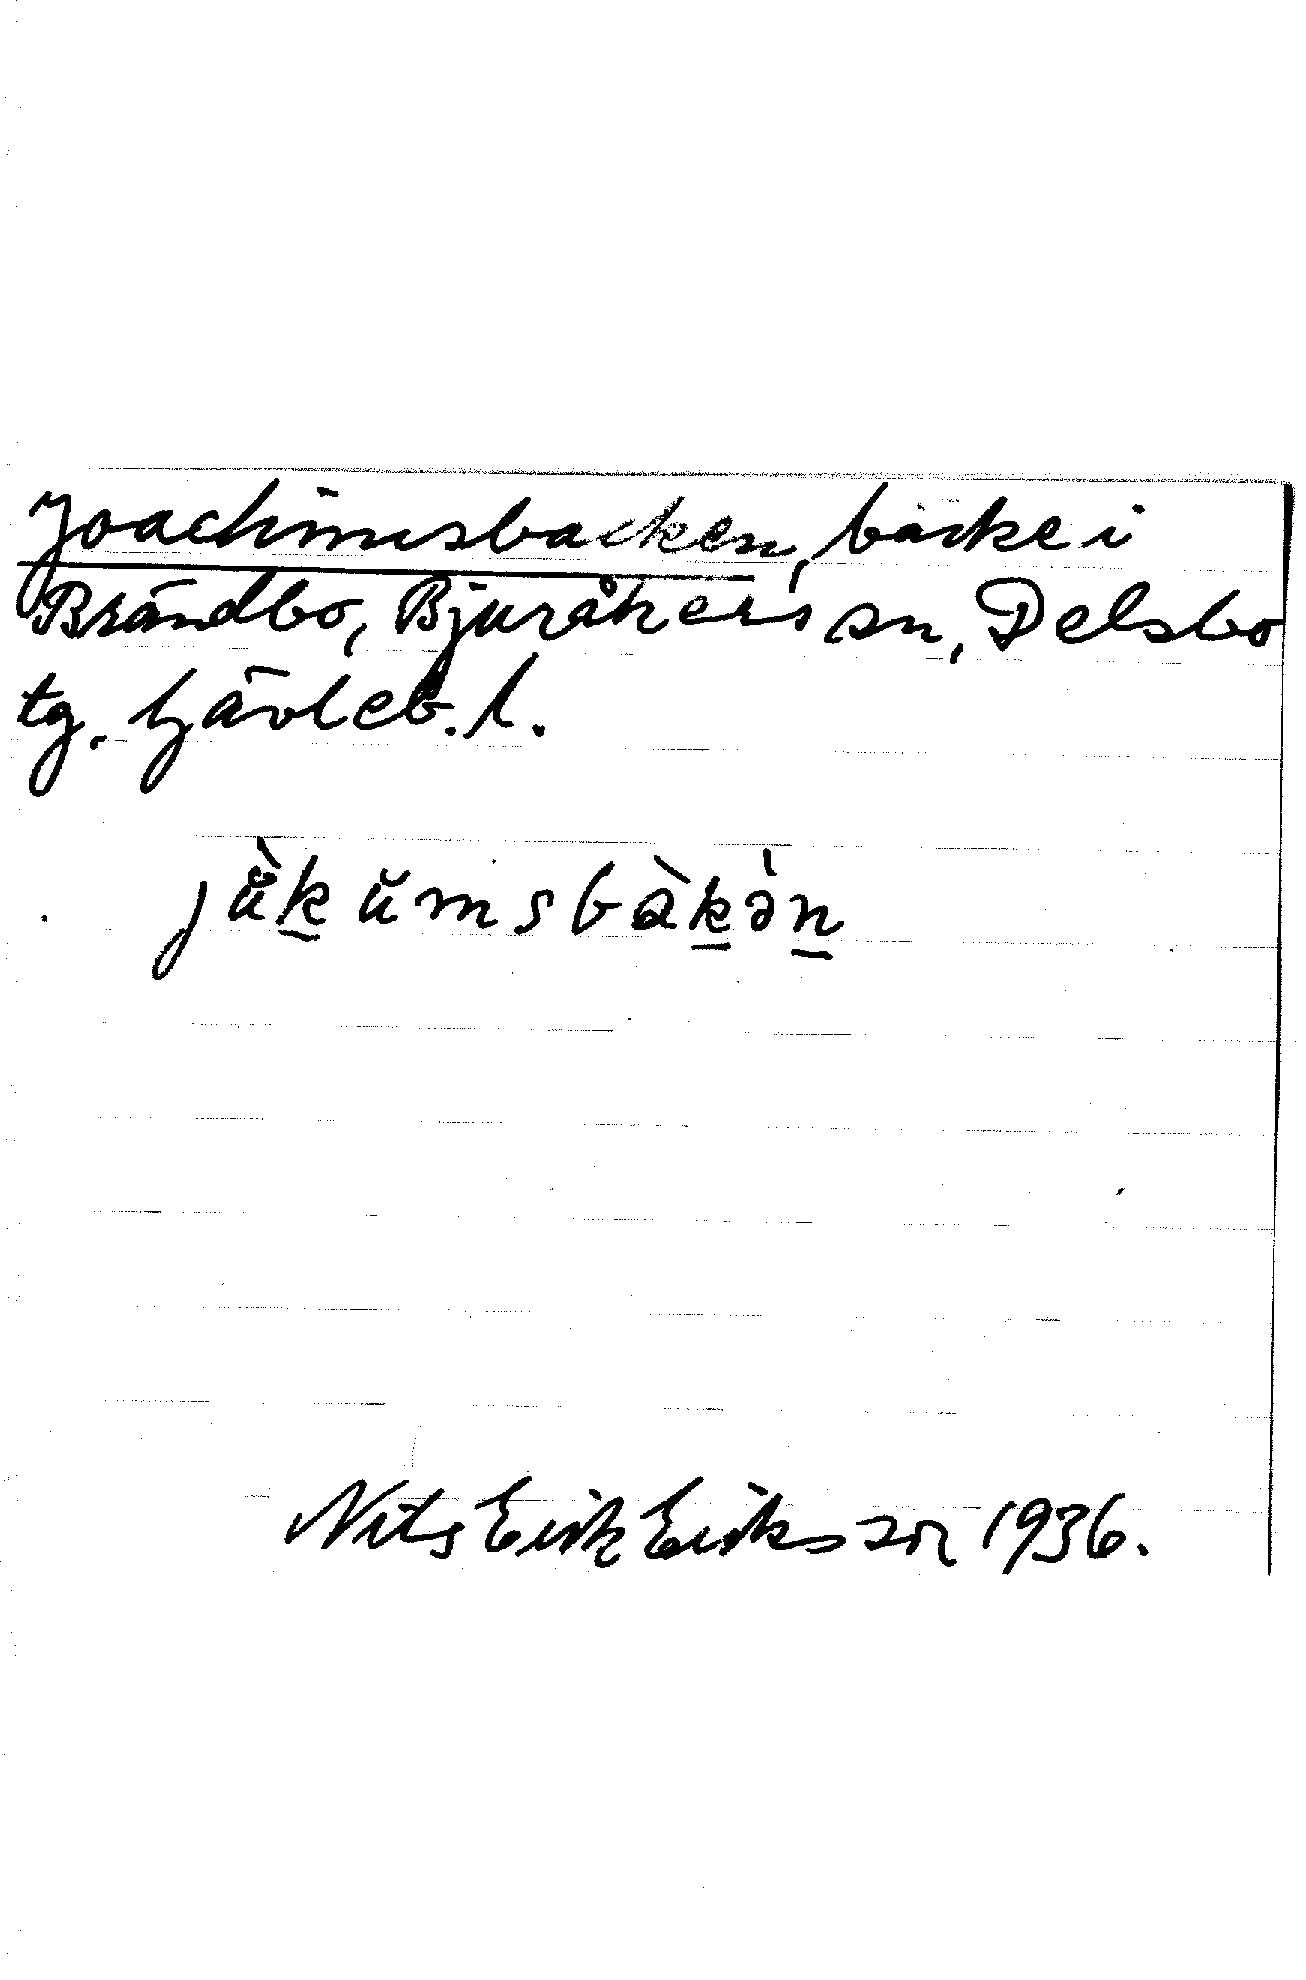 Joachimsbacken, backe i
Brändbo, Bjuråkers sn, Delsbo
tg. Gävleb. l.
jù̆k̲ŭmsbàk̲ə̀n̲
Nils Erik Eriksson 1936.